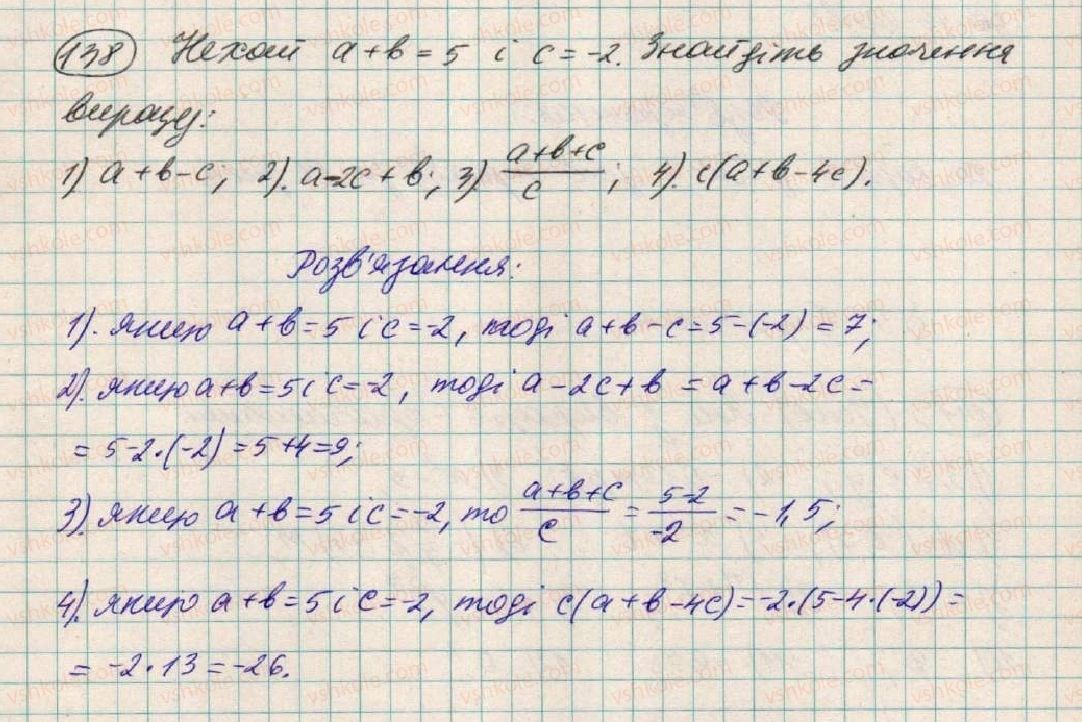 138 Нехай a+b=5 і c=-2. Знайдіть значення
виразу:
1) a+b-c; 2). a-2c+b; 3) (a+b+c)/c; 4). c(a+b-4c).
Розв'язання:
1). якщо a+b=5 і c=-2, тоді a+b-c=5-(-2)=7;
2). якщо a+b=5 і c=-2, тоді a-2c+b=a+b-2c=
=5-2·(-2)=5+4=9;
3). якщо a+b=5 і c=-2, то (a+b+c)/c=(5-2)/-2=-1,5;
4). якщо a+b=5 і c=-2, тоді c(a+b-4c)=-2·(5-4·(-2))=
=-2·13=-26.